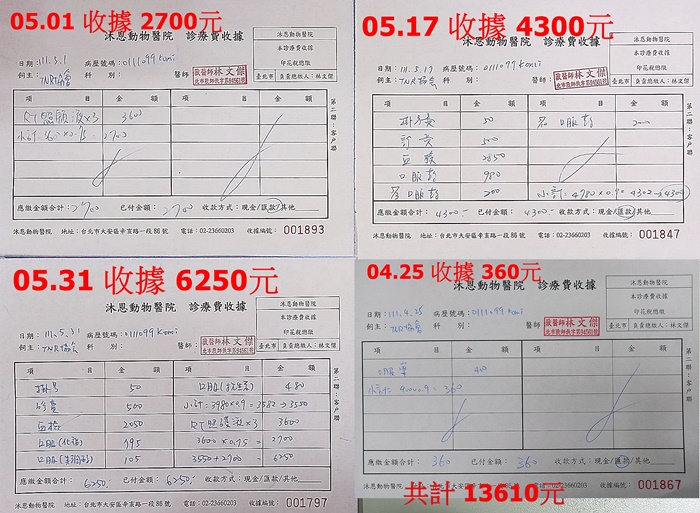 05.01 收據 2700元
沐恩動物醫院 診療費收據
沐恩動物醫院
本診療費收據
印花稅總繳
臺北市 負責總繳人:林文傑
日期:111.5.1 病歷號碼:0111099 Komi
飼主:TNR協會 科 別: 醫師:
獸醫師林文傑
項 目 金 額 項 目 金 額
3600
2700
第二聯:飼主聯
應繳金額合計:2700 已付金額:2700 收款方式:現金/匯款/其他
沐恩動物醫院 地址:台北市大安區辛亥路一段86號 電話:02-23660203 收據編號:001893
05.17 收據 4300元
沐恩動物醫院 診療費收據
沐恩動物醫院
本診療費收據
印花稅總繳
臺北市 負責總繳人:林文傑
日期:111.5.17 病歷號碼:0111099 Komi
飼主:TNR協會 科 別: 醫師:
獸醫師林文傑
項 目 金 額 項 目 金 額
掛號費 50
診費 500
血檢
口服藥 980
第二聯:飼主聯
應繳金額合計:4300 已付金額:4300 收款方式:現金/匯款/其他
沐恩動物醫院 地址:台北市大安區辛亥路一段86號 電話:02-23660203 收據編號:001847
05.31 收據 6250元
沐恩動物醫院 診療費收據
沐恩動物醫院
本診療費收據
印花稅總繳
臺北市 負責總繳人:林文傑
日期:111.5.31 病歷號碼:0111099 Komi
飼主:TNR協會 科 別: 醫師:
獸醫師林文傑
項 目 金 額 項 目 金 額
掛號 50 480
診費 500 小計=3980×0.9=3582→3550
血檢 2050 3600
195 3600×0.75=2700
105 3550+2700=6250
第二聯:飼主聯
應繳金額合計:6250 已付金額:6250 收款方式:現金/匯款/其他
沐恩動物醫院 地址:台北市大安區辛亥路一段86號 電話:02-23660203 收據編號:001797
04.25 收據 360元
沐恩動物醫院 診療費收據
沐恩動物醫院
本診療費收據
印花稅總繳
臺北市 負責總繳人:林文傑
日期:111.4.25 病歷號碼:0111099 Komi
飼主:TNR協會 科 別: 醫師:
獸醫師林文傑
項 目 金 額 項 目 金 額
口服藥 400
小計=400×0.9=360
第二聯:飼主聯
應繳金額合計:360 已付金額:360 收款方式:現金/匯款/其他
沐恩動物醫院 地址:台北市大安區辛亥路一段86號 電話:02-23660203 收據編號:001867
共計 13610元